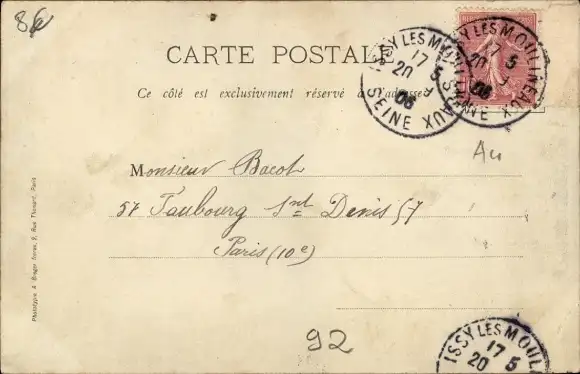 8€
CARTE POSTALE
Ce côté est exclusivement réservé à l'adresse
ISSY LES MOULINEAUX
17 5
20
05
SEINE
ISSY LES MOULINEAUX
17 5
20
05
SEINE
Au
Monsieur Bacot
57 Faubourg Snt Denis 57
Paris (10e)
92
ISSY LES MOULI
17 5
20
Phototypie A. Breger frères, 9, Rue Thénard, Paris